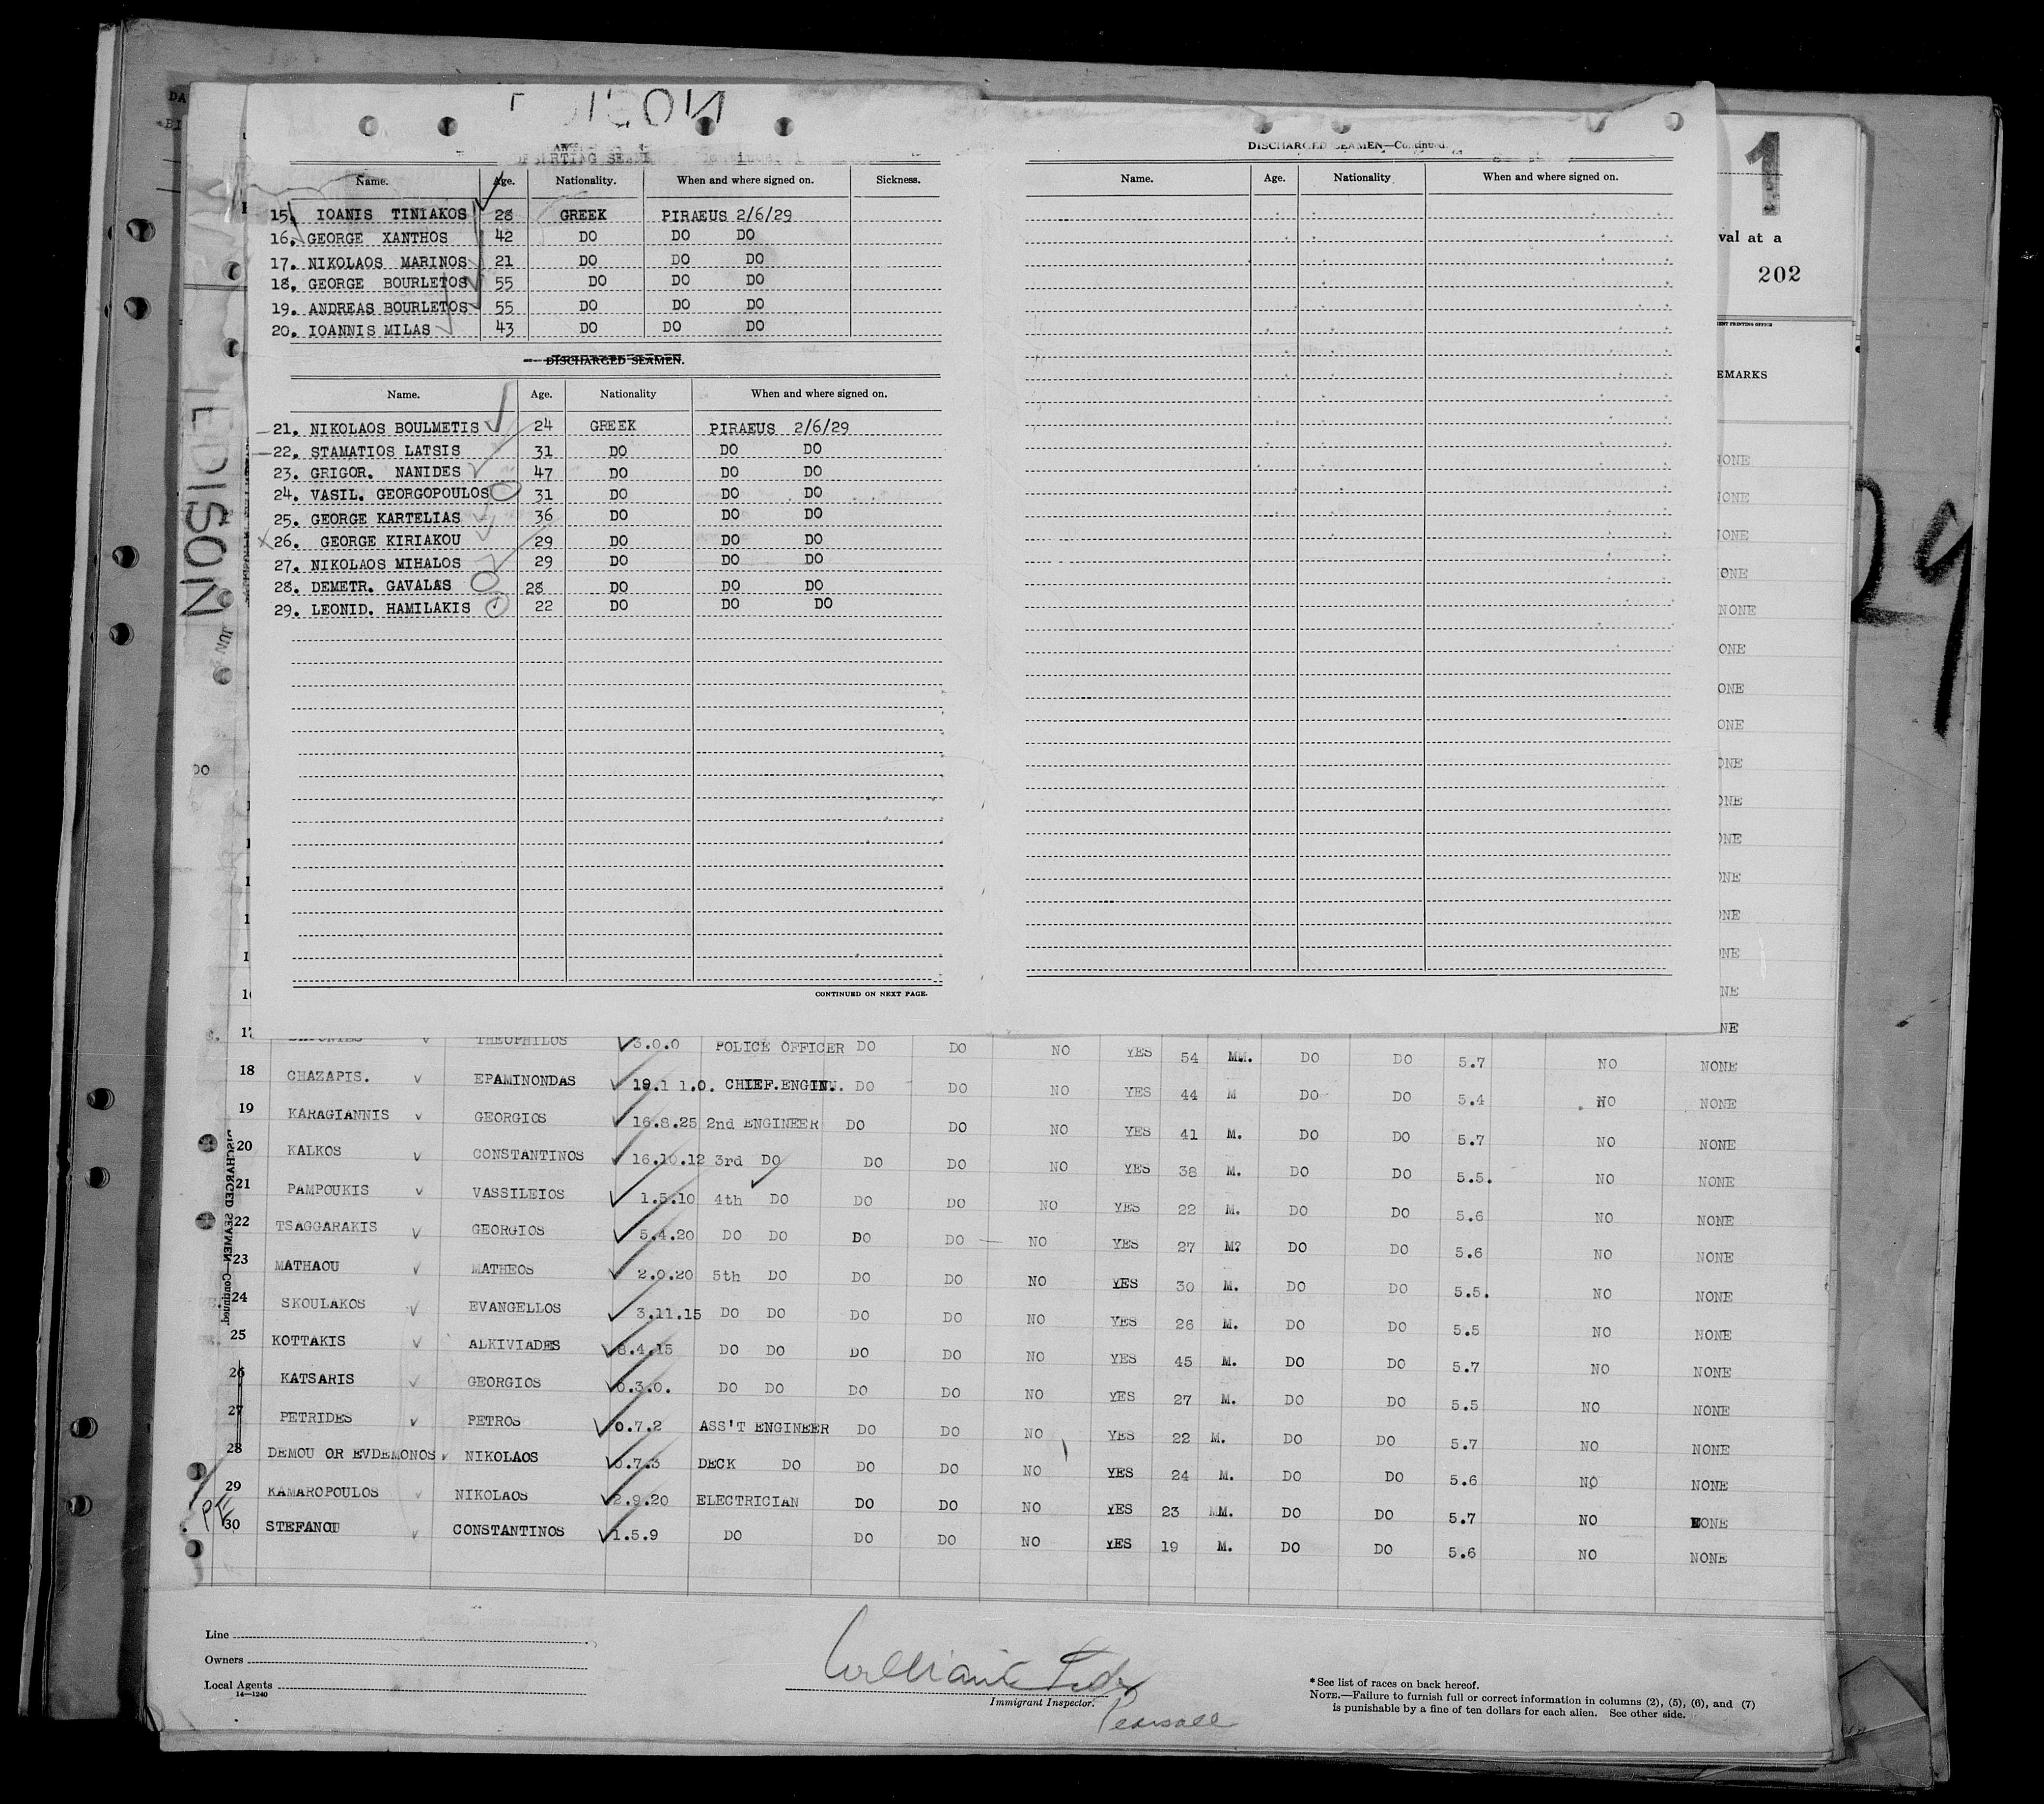 Name. Age. Nationality. When and where signed on. Sickness.
15. IOANIS TINIAKOS 28 GREEK PIRAEUS 2/6/29
16. GEORGE XANTHOS 42 DO DO DO
17. NIKOLAOS MARINOS 21 DO DO DO
18. GEORGE BOURLETOS 55 DO DO DO
19. ANDREAS BOURLETOS 55 DO DO DO
20. IOANNIS MILAS 43 DO DO DO
DISCHARGED SEAMEN.
Name. Age. Nationality When and where signed on.
21. NIKOLAOS BOULMETIS 24 GREEK PIRAEUS 2/6/29
22. STAMATIOS LATSIS 31 DO DO DO
23. GRIGOR. NANIDES 47 DO DO DO
24. VASIL. GEORGOPOULOS 31 DO DO DO
25. GEORGE KARTELIAS 36 DO DO DO
X 26. GEORGE KIRIAKOU 29 DO DO DO
27. NIKOLAOS MIHALOS 29 DO DO DO
28. DEMETR. GAVALAS 28 DO DO DO
29. LEONID. HAMILAKIS 22 DO DO DO
CONTINUED ON NEXT PAGE.
DISCHARGED SEAMEN—Continued.
Name. Age. Nationality When and where signed on.
1
val at a
202
EMARKS
NONE
NONE
NONE
ONE
NONE
ONE
ONE
ONE
ONE
ONE
ONE
NE
NE
NE
NE
NE
EDISON
JUN
DO
DISCHARGED SEAMEN—Continued.
THEOPHILOS 3.0.0 POLICE OFFICER DO DO NO YES 54 MM. DO DO 5.7 NO NONE
18 CHAZAPIS. EPAMINONDAS 19.1 1.0. CHIEF.ENGIN. DO DO NO YES 44 M DO DO 5.4 NO NONE
19 KARAGIANNIS GEORGIOS 16.8.25 2nd ENGINEER DO DO NO YES 41 M. DO DO 5.7 NO NONE
20 KALKOS CONSTANTINOS 16.10.12 3rd DO DO DO NO YES 38 M. DO DO 5.5. NO NONE
21 PAMPOUKIS VASSILEIOS 1.5.10 4th DO DO DO NO YES 22 M. DO DO 5.6 NO NONE
22 TSAGGARAKIS GEORGIOS 5.4.20 DO DO DO DO NO YES 27 M? DO DO 5.6 NO NONE
23 MATHAOU MATHEOS 2.0.20 5th DO DO DO NO YES 30 M. DO DO 5.5. NO NONE
24 SKOULAKOS EVANGELLOS 3.11.15 DO DO DO DO NO YES 26 M. DO DO 5.5 NO NONE
25 KOTTAKIS ALKIVIADES 8.4.15 DO DO DO DO NO YES 45 M. DO DO 5.7 NO NONE
26 KATSARIS GEORGIOS 0.3.0. DO DO DO DO NO YES 27 M. DO DO 5.5 NO NONE
27 PETRIDES PETROS 0.7.2 ASS'T ENGINEER DO DO NO YES 22 M. DO DO 5.7 NO NONE
28 DEMOU OR EVDEMONOS NIKOLAOS 0.7.3 DECK DO DO DO NO YES 24 M. DO DO 5.6 NO NONE
29 KAMAROPOULOS NIKOLAOS 2.9.20 ELECTRICIAN DO DO NO YES 23 MM. DO DO 5.7 NO NONE
30 STEFANOU CONSTANTINOS 1.5.9 DO DO DO NO YES 19 M. DO DO 5.6 NO NONE
Line
Owners
Local Agents
14—1240
Immigrant Inspector.
Pearsall
*See list of races on back hereof.
NOTE.—Failure to furnish full or correct information in columns (2), (5), (6), and (7)
is punishable by a fine of ten dollars for each alien. See other side.